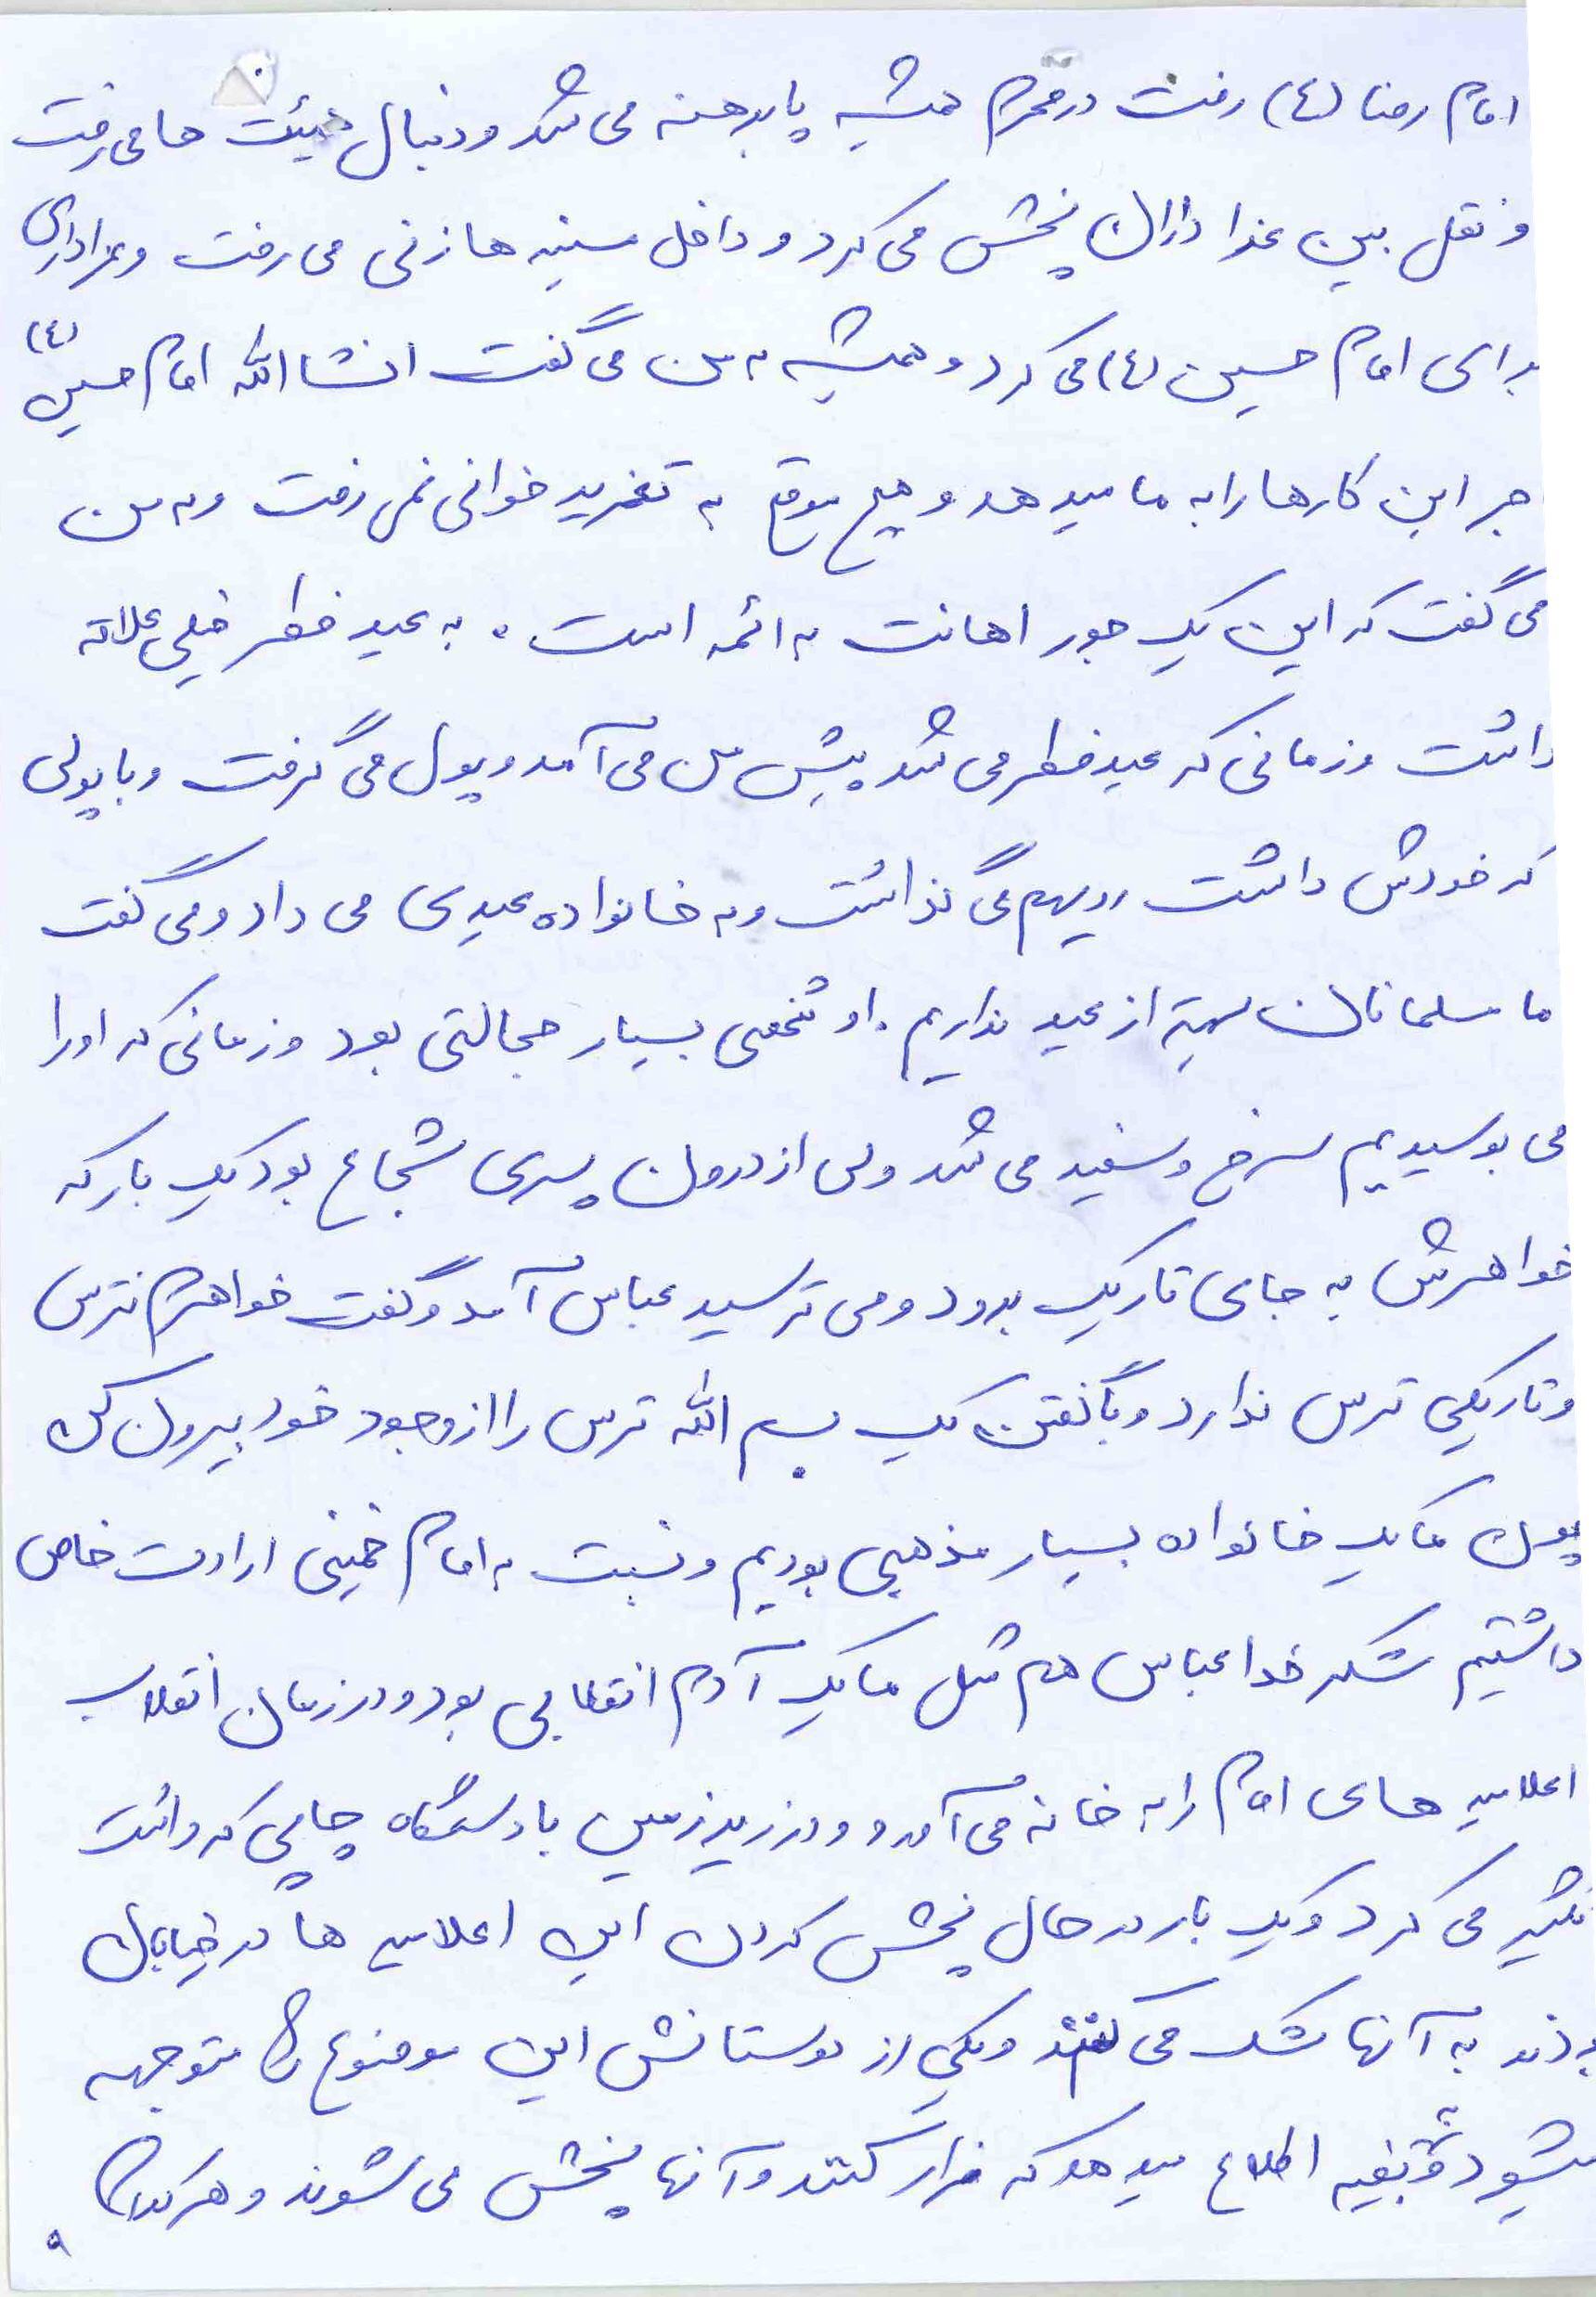 امام رضا (ع) رفت در محرم همیشه پا برهنه می شد و دنبال هیئت ها می رفت
و نقل بین عذا داران پخش می کرد و داخل سینه ها زنی می رفت و عزاداری
برای امام حسین (ع) می کرد و همیشه به من می گفت انشاالله امام حسین (ع)
اجر این کارها را به ما میدهد و هیچ موقع به تغزیه خوانی نمی رفت و به من
می گفت که این یک جور اهانت به ائمه است . به عید فطر خیلی علاقه
داشت و زمانی که عید فطر می شد پیش من می آمد و پول می گرفت و با پولی
که خودش داشت رویهم می گذاشت و به خانواده عیدی می داد و می گفت
ما مسلمانان بهتر از عید نداریم . او شخصی بسیار خجالتی بود و زمانی که او را
می بوسیدیم سرخ و سفید می شد ولی از درون پسری شجاع بود یک بار که
خواهرش به جای تاریک برود و می ترسید عباس آمد و گفت خواهرم نترس
و تاریکی ترس ندارد و با گفتن یک بسم الله ترس را از وجود خود بیرون کن
چون ما یک خانواده بسیار مذهبی بودیم و نسبت به امام خمینی ارادت خاص
داشتیم شکر خدا عباس هم مثل ما یک آدم انقلابی بود و در زمان انقلاب
اعلامیه های امام را به خانه می آورد و در زیرزمین با دستگاه چاپی که داشت
تکثیر می کرد و یک بار در حال پخش کردن این اعلامیه ها در خیابان
بودند به آنها شک می کنند و یکی از دوستانش این موضوع را متوجه
میشود و به بقیه اطلاع میدهد که فرار کنند و آنها پخش می شوند و هرکدام
۹